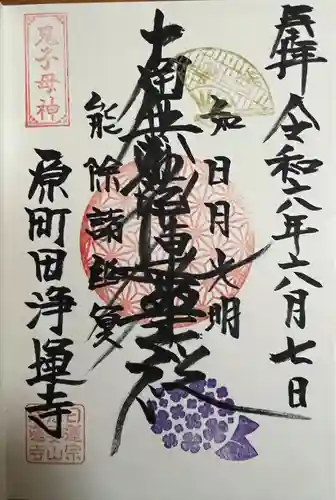 奉拝 令和六年六月七日
如日月光明
南無妙法蓮華経
能除諸幽冥
鬼子母神
原町田 浄運寺